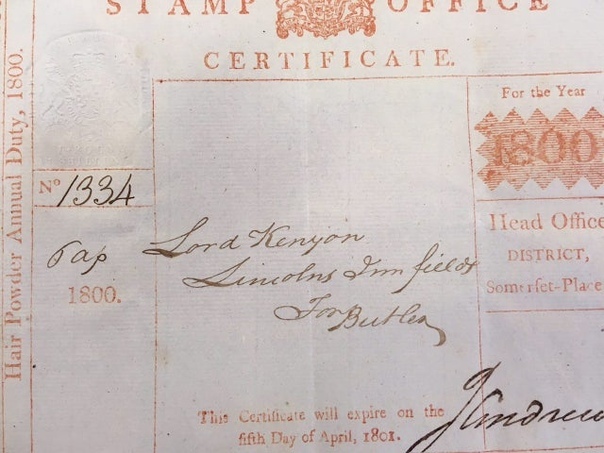 STAMP OFFICE
CERTIFICATE.
Hair Powder Annual Duty, 1800.
For the Year
1800
Nº 1334
6 Ap
1800.
Lord Kenyon
Lincolns Inn fields
For Butler
Head Office
DISTRICT,
Somerset-Place
This Certificate will expire on the
fifth Day of April, 1801.